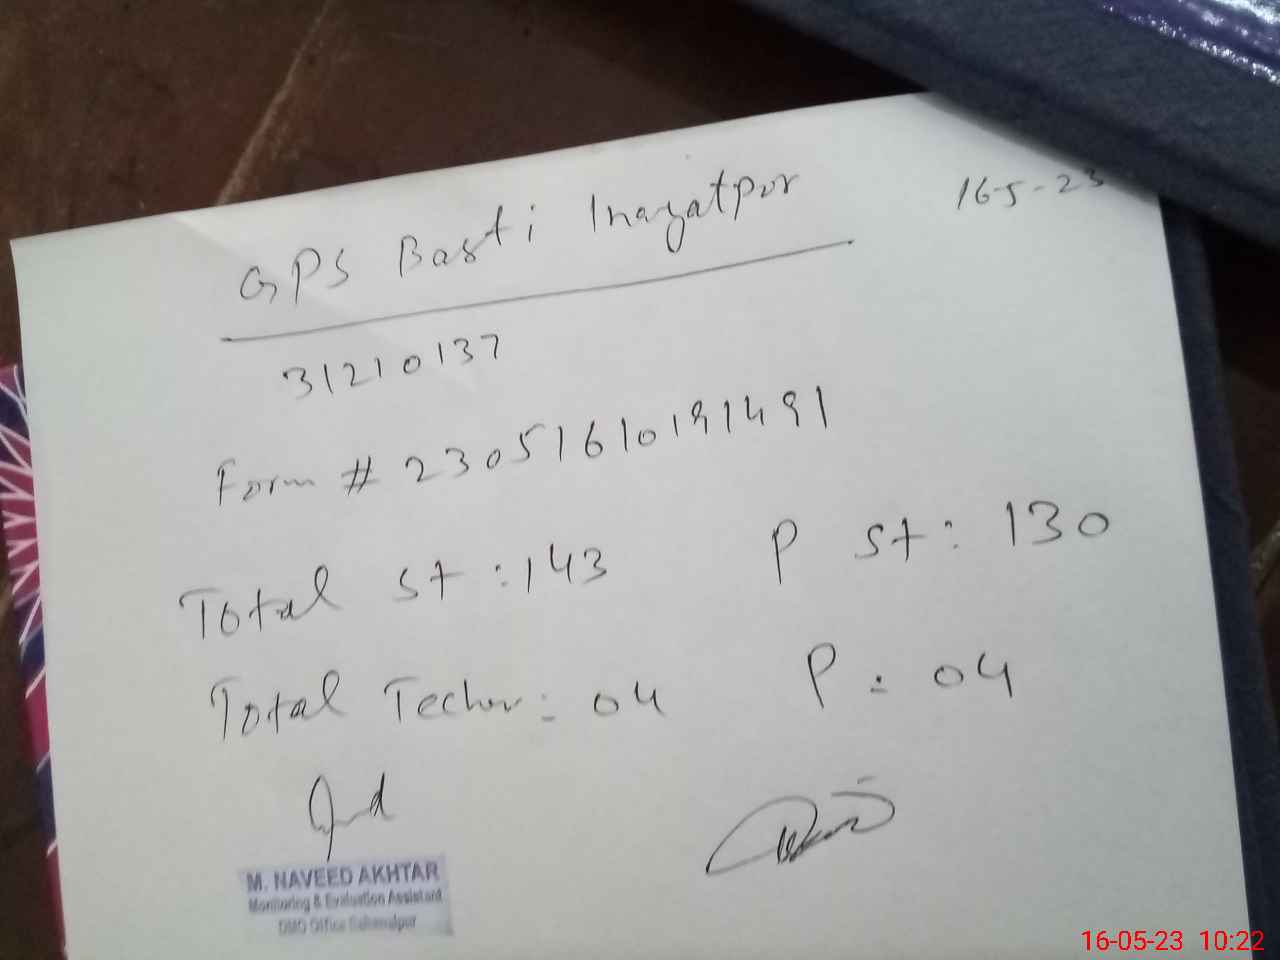 16-5-23
GPS Basti Inayatpur
31210137
Form # 23051610191491
Total st : 143 P st : 130
Total Techr : 04 P : 04
M. NAVEED AKHTAR
Monitoring & Evaluation Assistant
DMO Office Bahawalpur
16-05-23 10:22